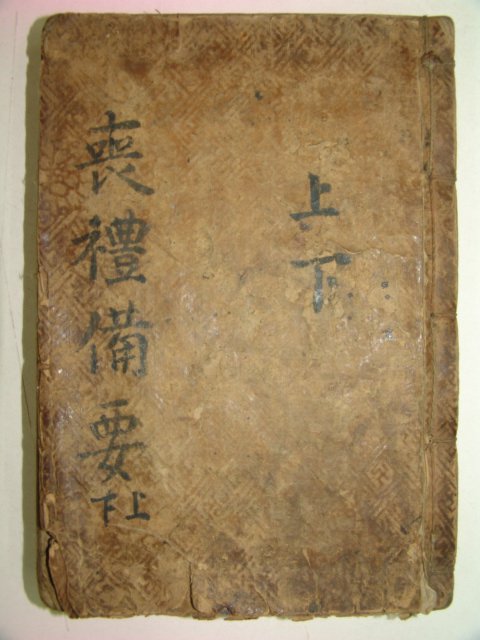 喪禮備要
上下
上
下